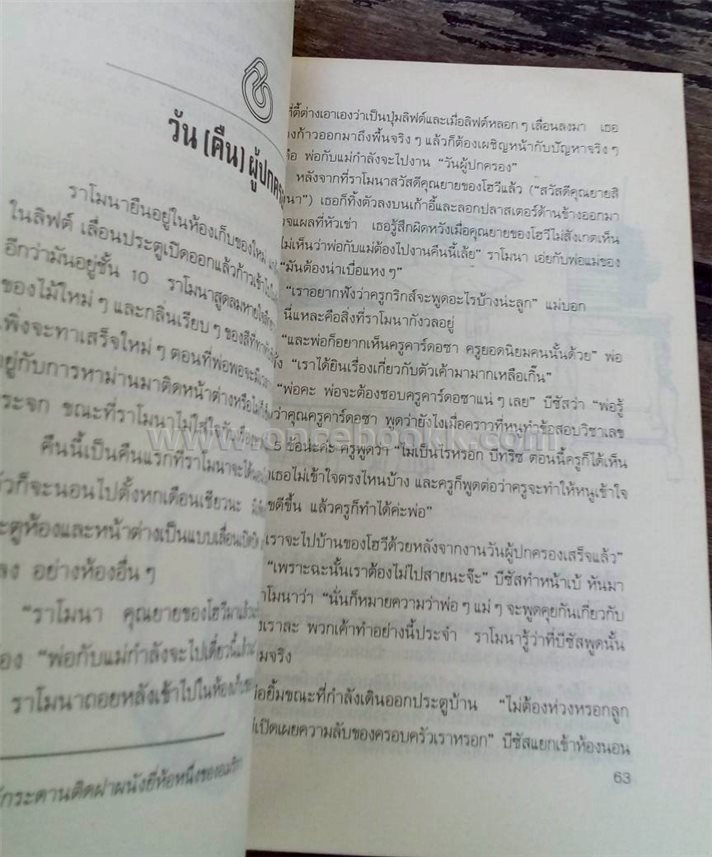 ๕
วัน (คืน) ผู้ปกคร
ราโมนายืนอยู่ในห้องเก็บของใหม่
ในลิฟต์ เลื่อนประตูเปิดออกแล้วก้าวเข้าไป
อีกว่ามันอยู่ชั้น 10 ราโมนาสูดลมหายใจ
ของไม้ใหม่ๆ และกลิ่นเรียบๆ ของสีที่
เพิ่งจะทาเสร็จใหม่ๆ ตอนที่พ่อพอจะมี
อยู่กับการหาม่านมาติดหน้าต่างหรือ
ระจก ขณะที่ราโมนาไม่ใส่ใจ
คืนนี้เป็นคืนแรกที่ราโมนาจะได้
ัวก็จะนอนไปตั้งหกเดือนเชียวนะ
ะตูห้องและหน้าต่างเป็นแบบเลื่อน
ลง อย่างห้องอื่นๆ
"ราโมนา คุณยายของโฮวีมาแล้ว
อง "พ่อกับแม่กำลังจะไปเดี๋ยวนี้
ราโมนาถอยหลังเข้าไปในห้อง
ักระดานติดฝาผนังยี่ห้อหนึ่งของอเมริกา
ที่ตี้ต่างเอาเองว่าเป็นปุ่มลิฟต์และเมื่อลิฟต์หลอกๆ เลื่อนลงมา เธอ
องก้าวออกมาถึงพื้นจริงๆ แล้วก็ต้องเผชิญหน้ากับปัญหาจริงๆ
คือ พ่อกับแม่กำลังจะไปงาน "วันผู้ปกครอง"
หลังจากที่ราโมนาสวัสดีคุณยายของโฮวีแล้ว ("สวัสดีคุณยายสิ
มนา") เธอก็ทิ้งตัวลงบนเก้าอี้และลอกปลาสเตอร์ด้านข้างออกมา
วจแผลที่หัวเข่า เธอรู้สึกผิดหวังเมื่อคุณยายของโฮวีไม่สังเกตเห็น
ไม่เห็นว่าพ่อกับแม่ต้องไปงานคืนนี้เลย" ราโมนา เอ่ยกับพ่อแม่ของ
"มันต้องน่าเบื่อแหงๆ"
"เราอยากฟังว่าครูกริกส์จะพูดอะไรบ้างน่ะลูก" แม่บอก
นี่แหละคือสิ่งที่ราโมนากังวลอยู่
"และพ่อก็อยากเห็นครูคาร์ดอซา ครูยอดนิยมคนนั้นด้วย" พ่อ
"เราได้ยินเรื่องเกี่ยวกับตัวเค้ามามากเหลือเกิ๊น"
"พ่อคะ พ่อจะต้องชอบครูคาร์ดอซาแน่ๆ เลย" บีซัสว่า "พ่อรู้
มว่าคุณครูคาร์ดอซา พูดว่ายังไงเมื่อคราวที่หนูทำข้อสอบวิชาเลข
5 ข้อน่ะค่ะ ครูพูดว่า "ไม่เป็นไรหรอก บีทริซ ตอนนี้ครูก็ได้เห็น
าเธอไม่เข้าใจตรงไหนบ้าง และครูก็พูดต่อว่าครูจะทำให้หนูเข้าใจ
ขดีขึ้น แล้วครูก็ทำได้ค่ะพ่อ"
เราจะไปบ้านของโฮวีด้วยหลังจากงานวันผู้ปกครองเสร็จแล้ว"
"เพราะฉะนั้นเราต้องไม่ไปสายนะจ๊ะ" บีซัสทำหน้าเบ้ หันมา
าโมนาว่า "นั่นก็หมายความว่าพ่อๆ แม่ๆ จะพูดคุยกันเกี่ยวกับ
งเราละ พวกเค้าทำอย่างนี้ประจำ ราโมนารู้ว่าที่บีซัสพูดนั้น
มจริง
พ่อยิ้มขณะที่กำลังเดินออกประตูบ้าน "ไม่ต้องห่วงหรอกลูก
่เปิดเผยความลับของครอบครัวเราหรอก" บีซัสแยกเข้าห้องนอน
63
www.oncebookk.com